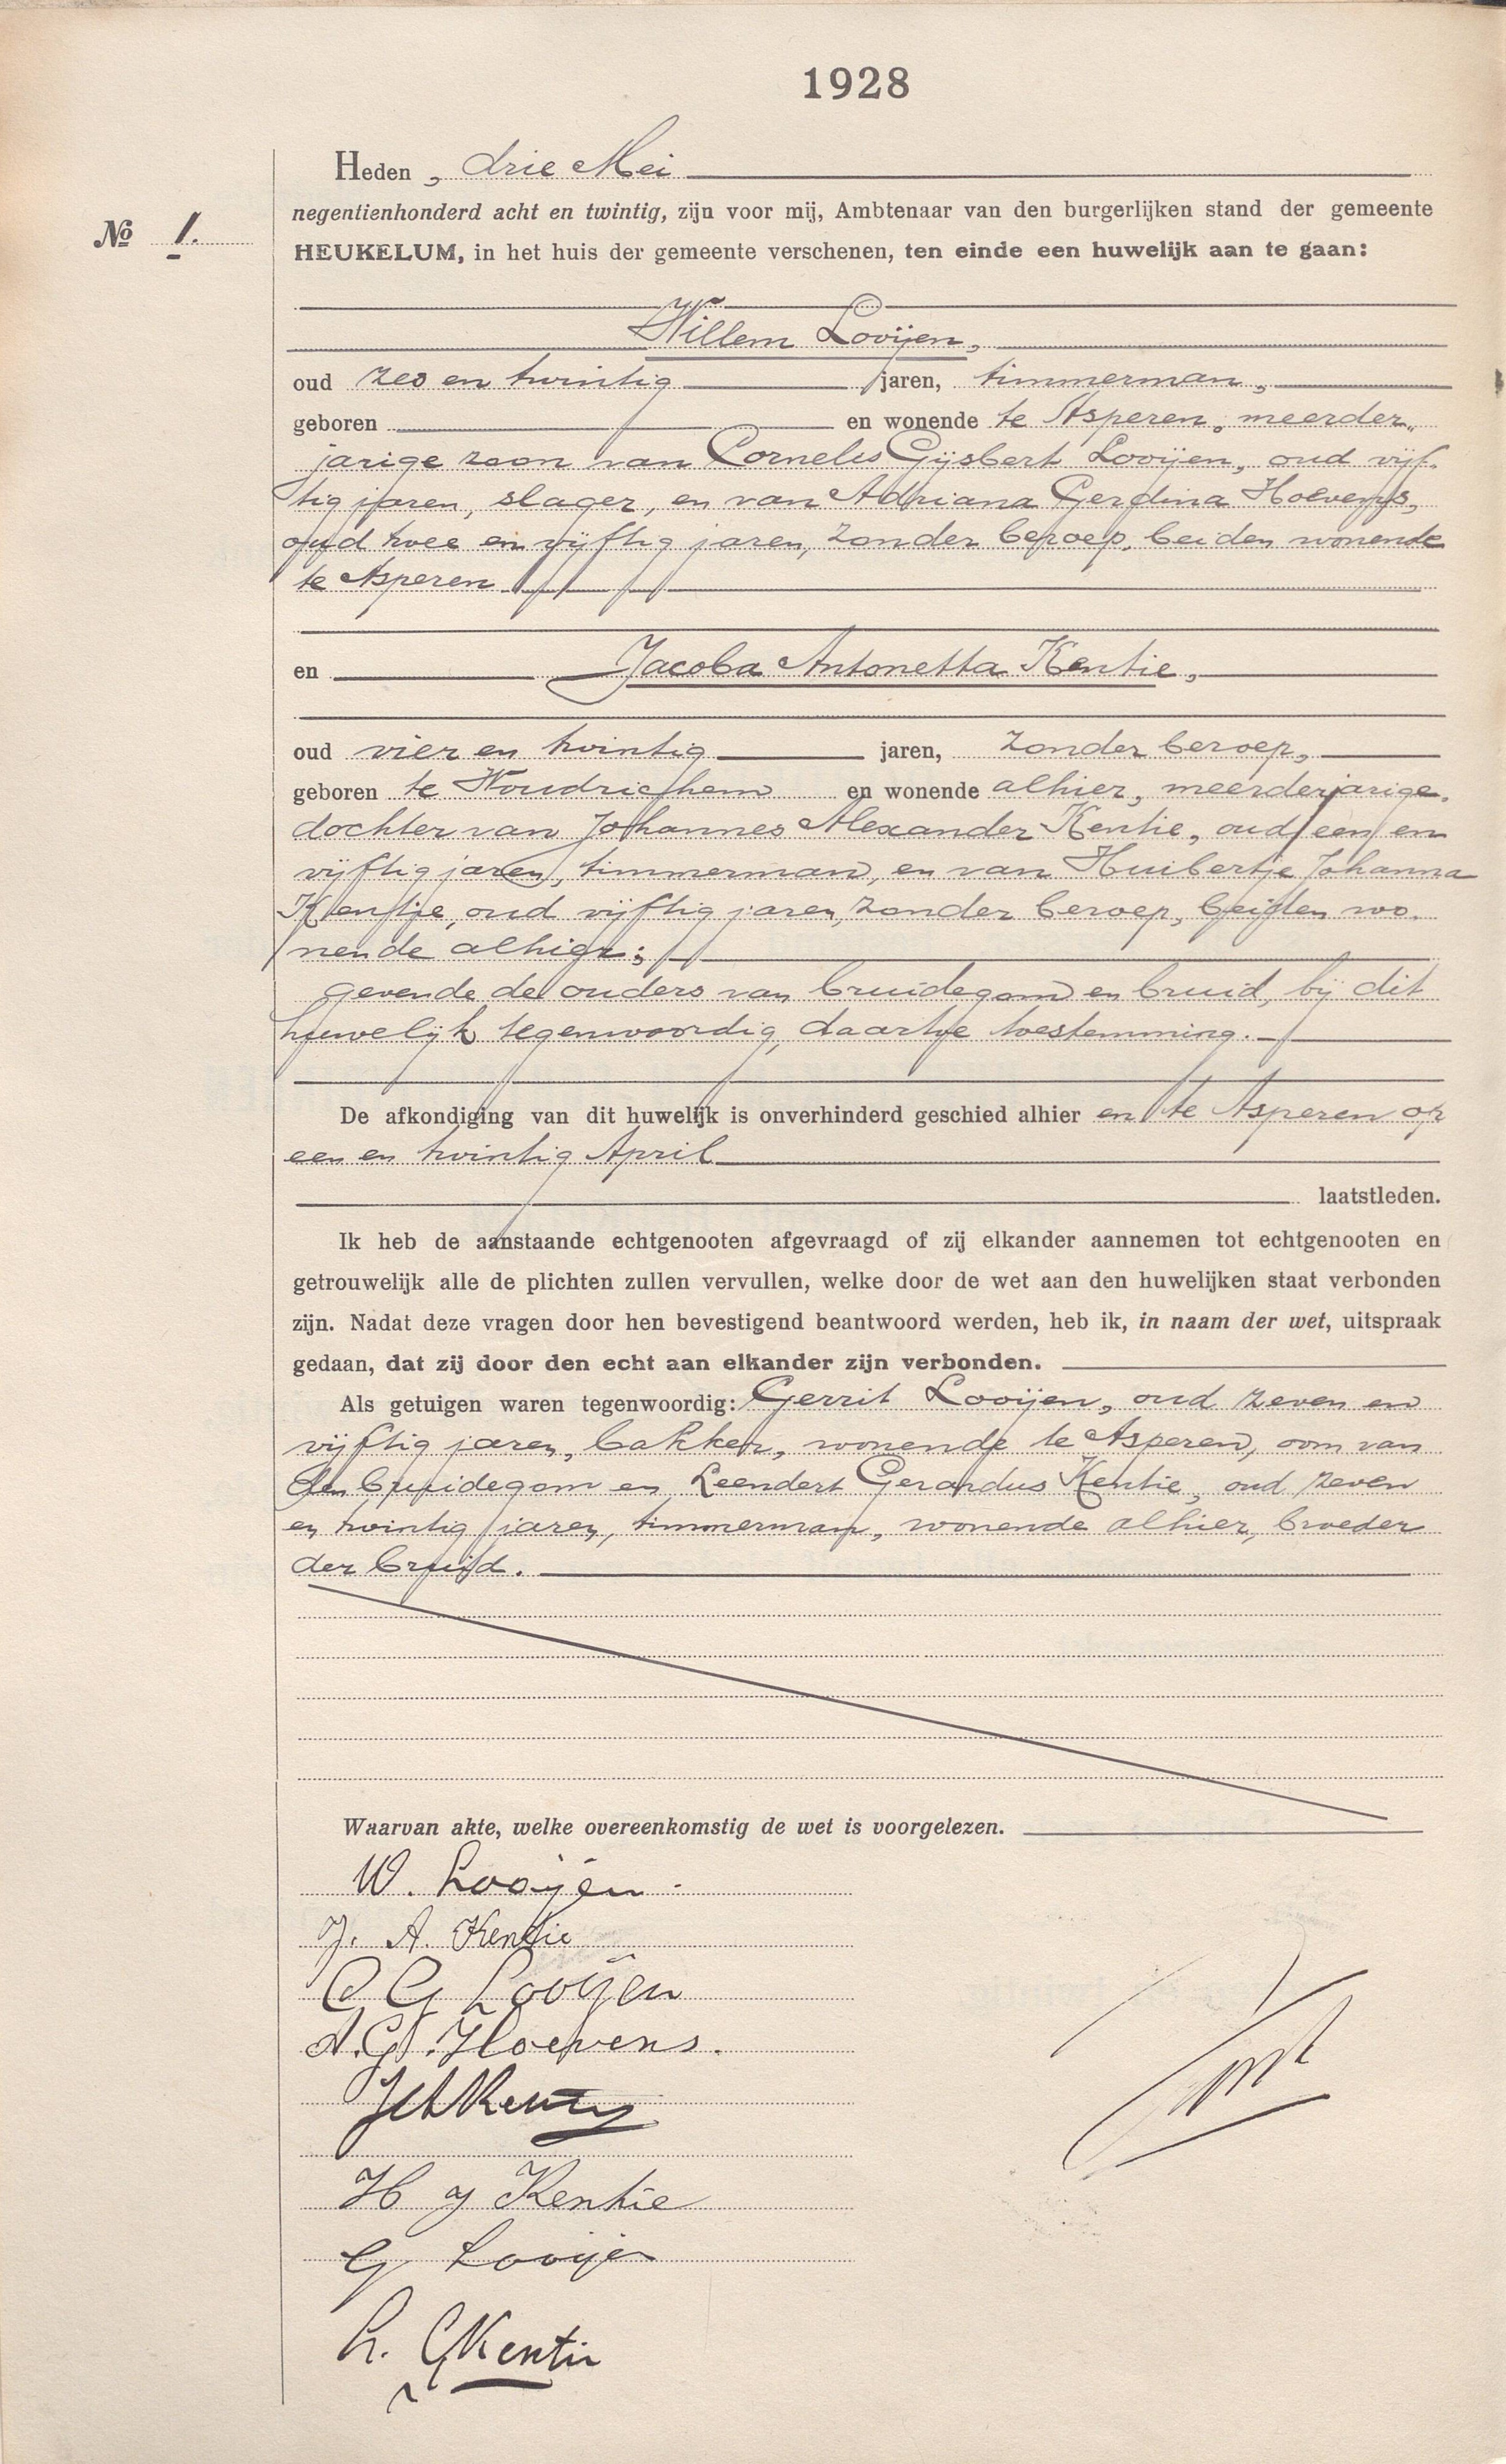 1928
Heden, drie Mei
negentienhonderd acht en twintig, zijn voor mij, Ambtenaar van den burgerlijken stand der gemeente
No 1.
HEUKELUM, in het huis der gemeente verschenen, ten einde een huwelijk aan te gaan:
Willem Looijen,
oud zes en twintig jaren, timmerman,
geboren en wonende te Asperen, meerder„
jarige zoon van Cornelis Gijsbert Looijen, oud vijf„
tig jaren, slager, en van Adriana Gerdina Hoevens,
oud twee en vijftig jaren, zonder beroep, beiden wonende
te Asperen
en Jacoba Antonetta Kentie,
oud vier en twintig jaren, zonder beroep,
geboren te Woudrichem en wonende alhier, meerderjarige
dochter van Johannes Alexander Kentie, oud een en
vijftig jaren, timmerman, en van Huibertje Johanna
Kentie, oud vijftig jaren, zonder beroep, beiden wo„
nende alhier;
gevende de ouders van bruidegom en bruid, bij dit
huwelijk tegenwoordig, daartoe toestemming.
De afkondiging van dit huwelijk is onverhinderd geschied alhier en te Asperen op
een en twintig April
laatstleden.
Ik heb de aanstaande echtgenooten afgevraagd of zij elkander aannemen tot echtgenooten en
getrouwelijk alle de plichten zullen vervullen, welke door de wet aan den huwelijken staat verbonden
zijn. Nadat deze vragen door hen bevestigend beantwoord werden, heb ik, in naam der wet, uitspraak
gedaan, dat zij door den echt aan elkander zijn verbonden.
Als getuigen waren tegenwoordig: Gerrit Looijen, oud zeven en
vijftig jaren, bakker, wonende te Asperen, oom van
den bruidegom en Leendert Gerardus Kentie, oud zeven
en twintig jaren, timmerman, wonende alhier, broeder
der bruid.
Waarvan akte, welke overeenkomstig de wet is voorgelezen.
W. Looijen.
J. A. Kentie
C G Looijen
A. G. Hoevens.
J A Kentie
H J Kentie
G Looijen
L. G Kentie